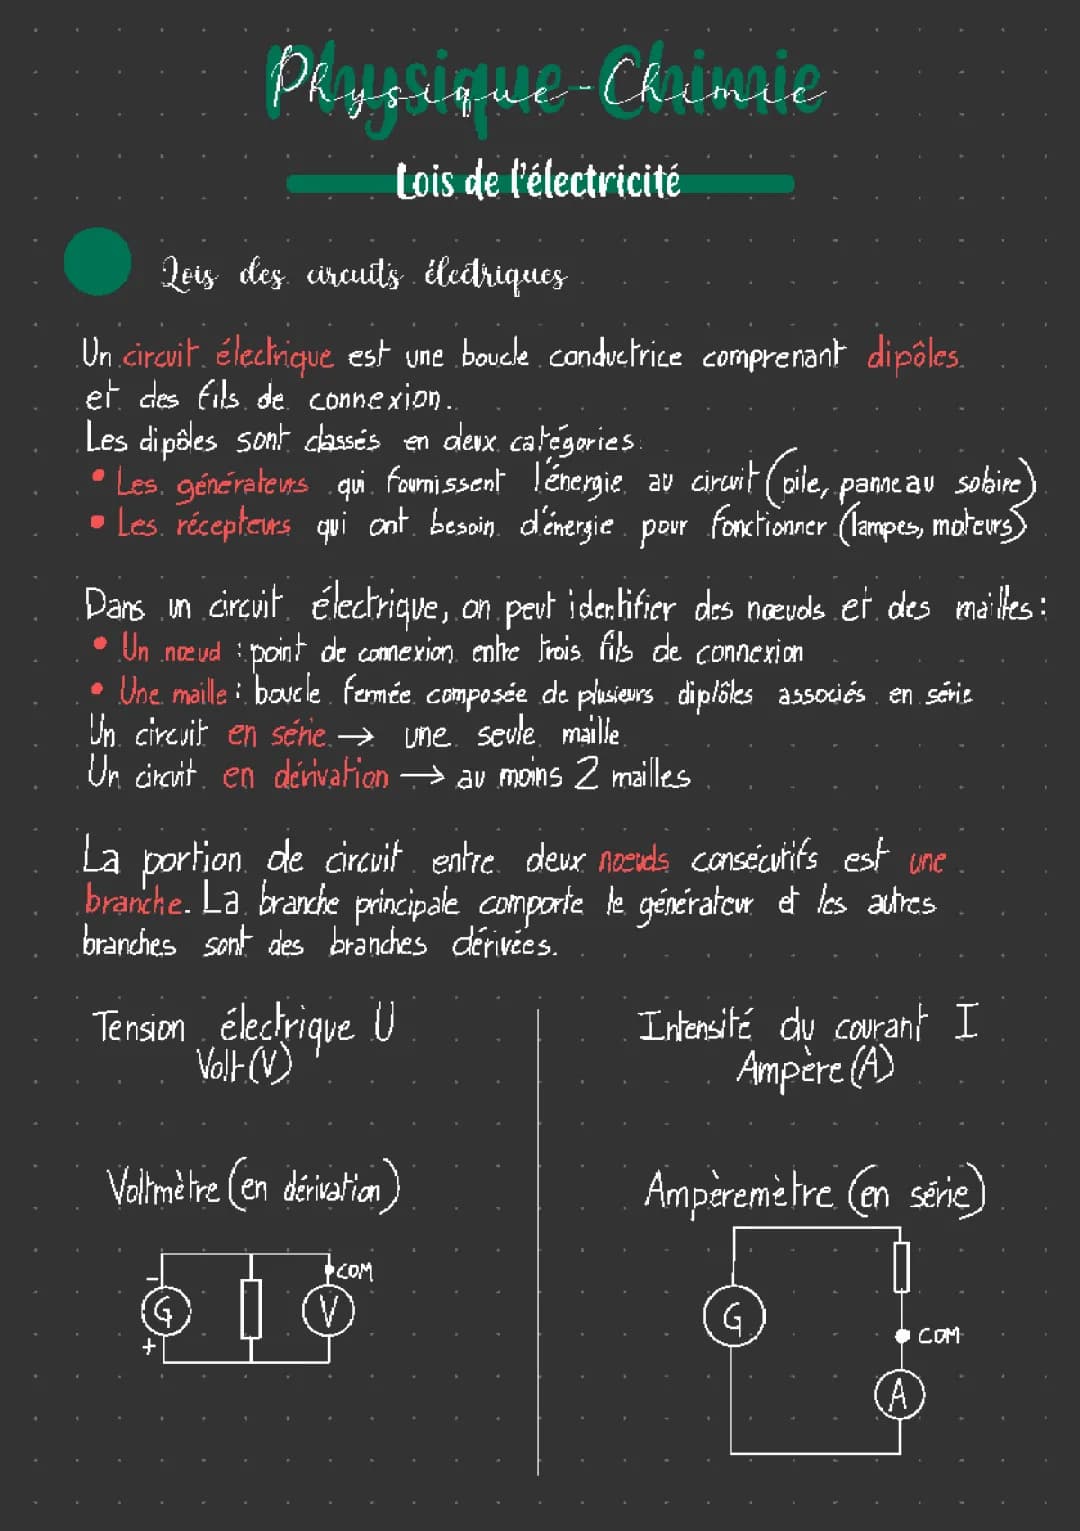 Physique-Chimie
Lois de l'électricité
Lois des circuits électriques
Un circuit électrique est une boucle conductrice comprenant dipôles
et des fils de connexion.
Les dipôles sont classés en deux catégories:
• Les générateurs qui fournissent l'énergie au circuit (pile, panneau solaire)
• Les récepteurs qui ont besoin d'énergie pour fonctionner (lampes, moteurs)
Dans un circuit électrique, on peut identifier des nœuds et des mailles :
• Un nœud : point de connexion entre trois fils de connexion
• Une maille : boucle fermée composée de plusieurs diplôles associés en série
Un circuit en série → une seule maille
Un circuit en dérivation → au moins 2 mailles
La portion de circuit entre deux noeuds consécutifs est une
branche. La branche principale comporte le générateur et les autres
branches sont des branches dérivées.
Tension électrique U
Volt (V)
Voltmètre (en dérivation)
-
COM
G
V
+
Intensité du courant I
Ampère (A)
Ampèremètre (en série)
G
COM
A